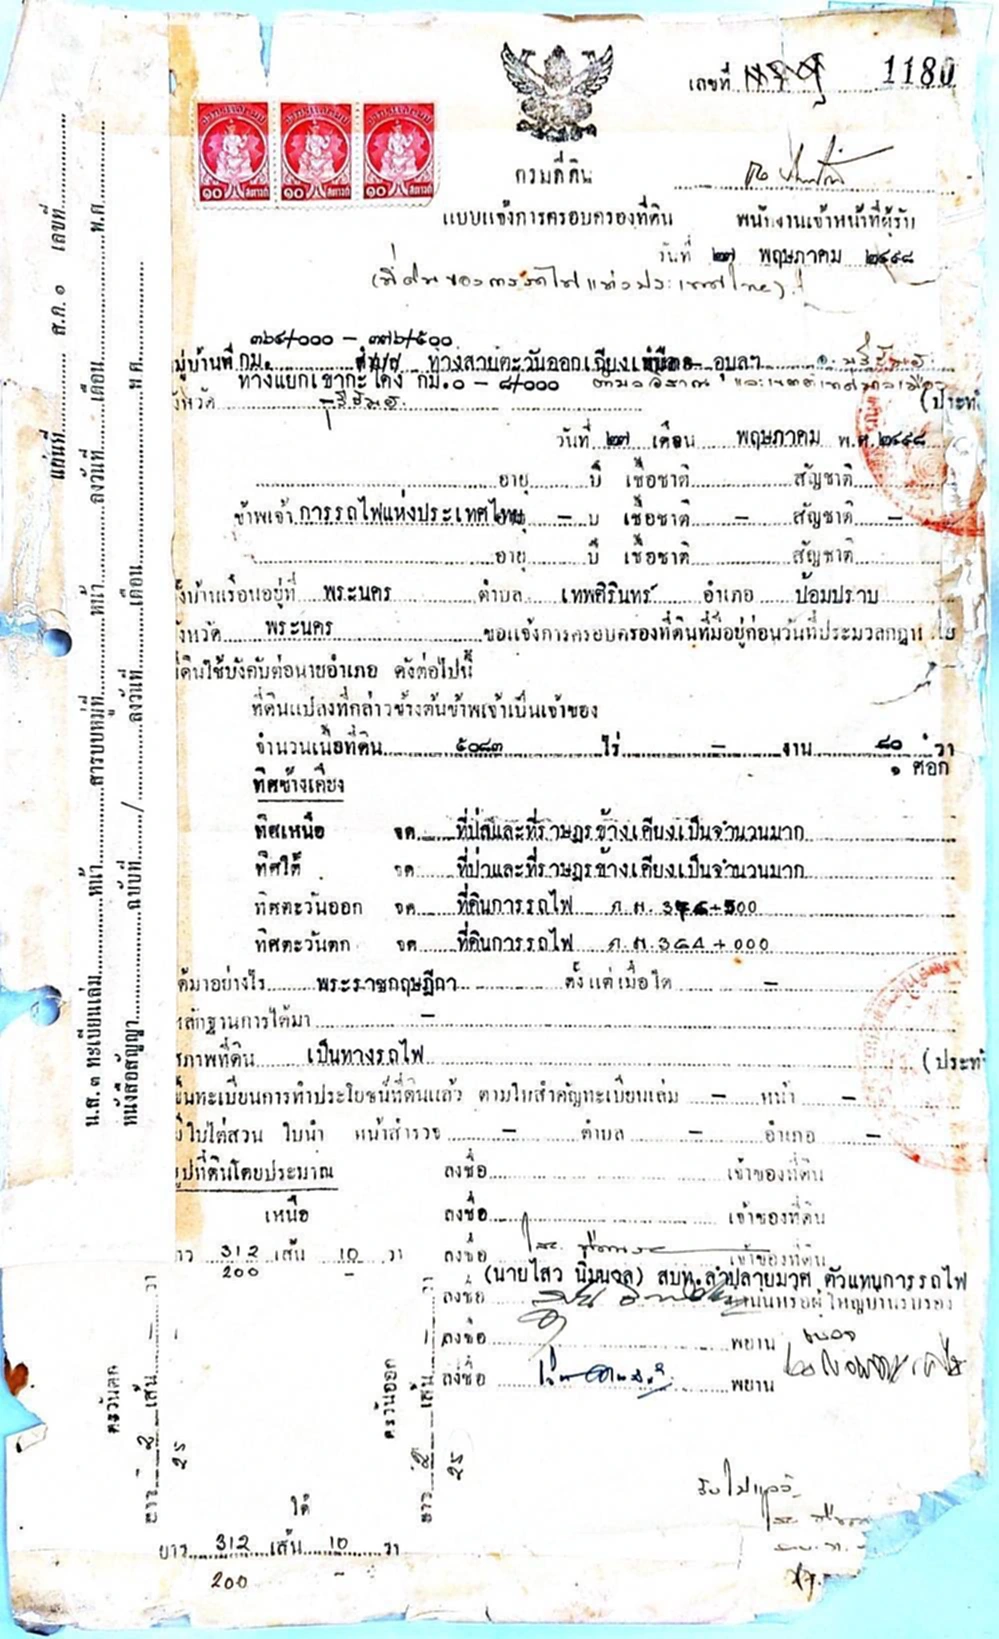 เลขที่ 1180
กรมที่ดิน
แบบแจ้งการครอบครองที่ดิน
พนักงานเจ้าหน้าที่ผู้รับ
วันที่ ๒๗ พฤษภาคม ๒๔๙๘
(ที่ดินของการรถไฟแห่งประเทศไทย)
๓๖๔/๐๐๐ – ๓๗๖/๕๐๐
หมู่บ้านที่ กม. ทางสายตะวันออกเฉียงเหนือ อุบลฯ
ทางแยกเขากะโดง กม.๐ – ๘/๐๐๐ ตำบลอิสาณ และเขตเทศบาลเมือง
จังหวัด บุรีรัมย์
(ประทับ
วันที่ ๒๗ เดือน พฤษภาคม พ.ศ. ๒๔๙๘
อายุ ปี เชื้อชาติ สัญชาติ
ข้าพเจ้า การรถไฟแห่งประเทศไทย – ปี เชื้อชาติ – สัญชาติ –
อายุ ปี เชื้อชาติ สัญชาติ
ตั้งบ้านเรือนอยู่ที่ พระนคร ตำบล เทพศิรินทร์ อำเภอ ป้อมปราบ
จังหวัด พระนคร ขอแจ้งการครอบครองที่ดินที่มีอยู่ก่อนวันที่ประมวลกฎหมาย
ที่ดินใช้บังคับต่อนายอำเภอ ดังต่อไปนี้
ที่ดินแปลงที่กล่าวข้างต้นข้าพเจ้าเป็นเจ้าของ
จำนวนเนื้อที่ดิน ๕๐๘๓ ไร่ – งาน ๘๐ วา
๑ ศอก
ทิศข้างเคียง
ทิศเหนือ จด ที่ป่าและที่ราษฎรข้างเคียงเป็นจำนวนมาก
ทิศใต้ จด ที่ป่าและที่ราษฎรข้างเคียงเป็นจำนวนมาก
ทิศตะวันออก จด ที่ดินการรถไฟ ก.ม. 376+500
ทิศตะวันตก จด ที่ดินการรถไฟ ก.ม. 364+000
ได้มาอย่างไร พระราชกฤษฎีกา ตั้งแต่เมื่อใด –
หลักฐานการได้มา –
สภาพที่ดิน เป็นทางรถไฟ
(ประทับ
ขึ้นทะเบียนการทำประโยชน์ที่ดินแล้ว ตามใบสำคัญทะเบียนเล่ม – หน้า –
มีใบไต่สวน ใบนำ หน้าสำรวจ – ตำบล – อำเภอ –
รูปที่ดินโดยประมาณ
ลงชื่อ เจ้าของที่ดิน
เหนือ
ลงชื่อ เจ้าของที่ดิน
ยาว 312 เส้น 10 วา
200 –
ลงชื่อ เจ้าของที่ดิน
(นายไสว นิ่มนวล) สบท.ลำปลายมาศ ตัวแทนการรถไฟ
ลงชื่อ กำนันหรือผู้ใหญ่บ้านรับรอง
ลงชื่อ พยาน
ลงชื่อ พยาน
ตะวันตก
ยาว 2 เส้น – วา
25
ตะวันออก
ยาว 2 เส้น – วา
25
ใต้
ยาว 312 เส้น 10 วา
200 –
รับไปแล้ว
แผ่นที่ ส.ก. ๑ เลขที่
น.ส.๓ ทะเบียนเล่ม หน้า สารบบหมู่ที่ หน้า ลงวันที่ เดือน พ.ศ.
หนังสือสัญญา ฉบับที่ / ลงวันที่ เดือน พ.ศ.
อากรแสตมป์
๑๐ สตางค์
อากรแสตมป์
๑๐ สตางค์
อากรแสตมป์
๑๐ สตางค์